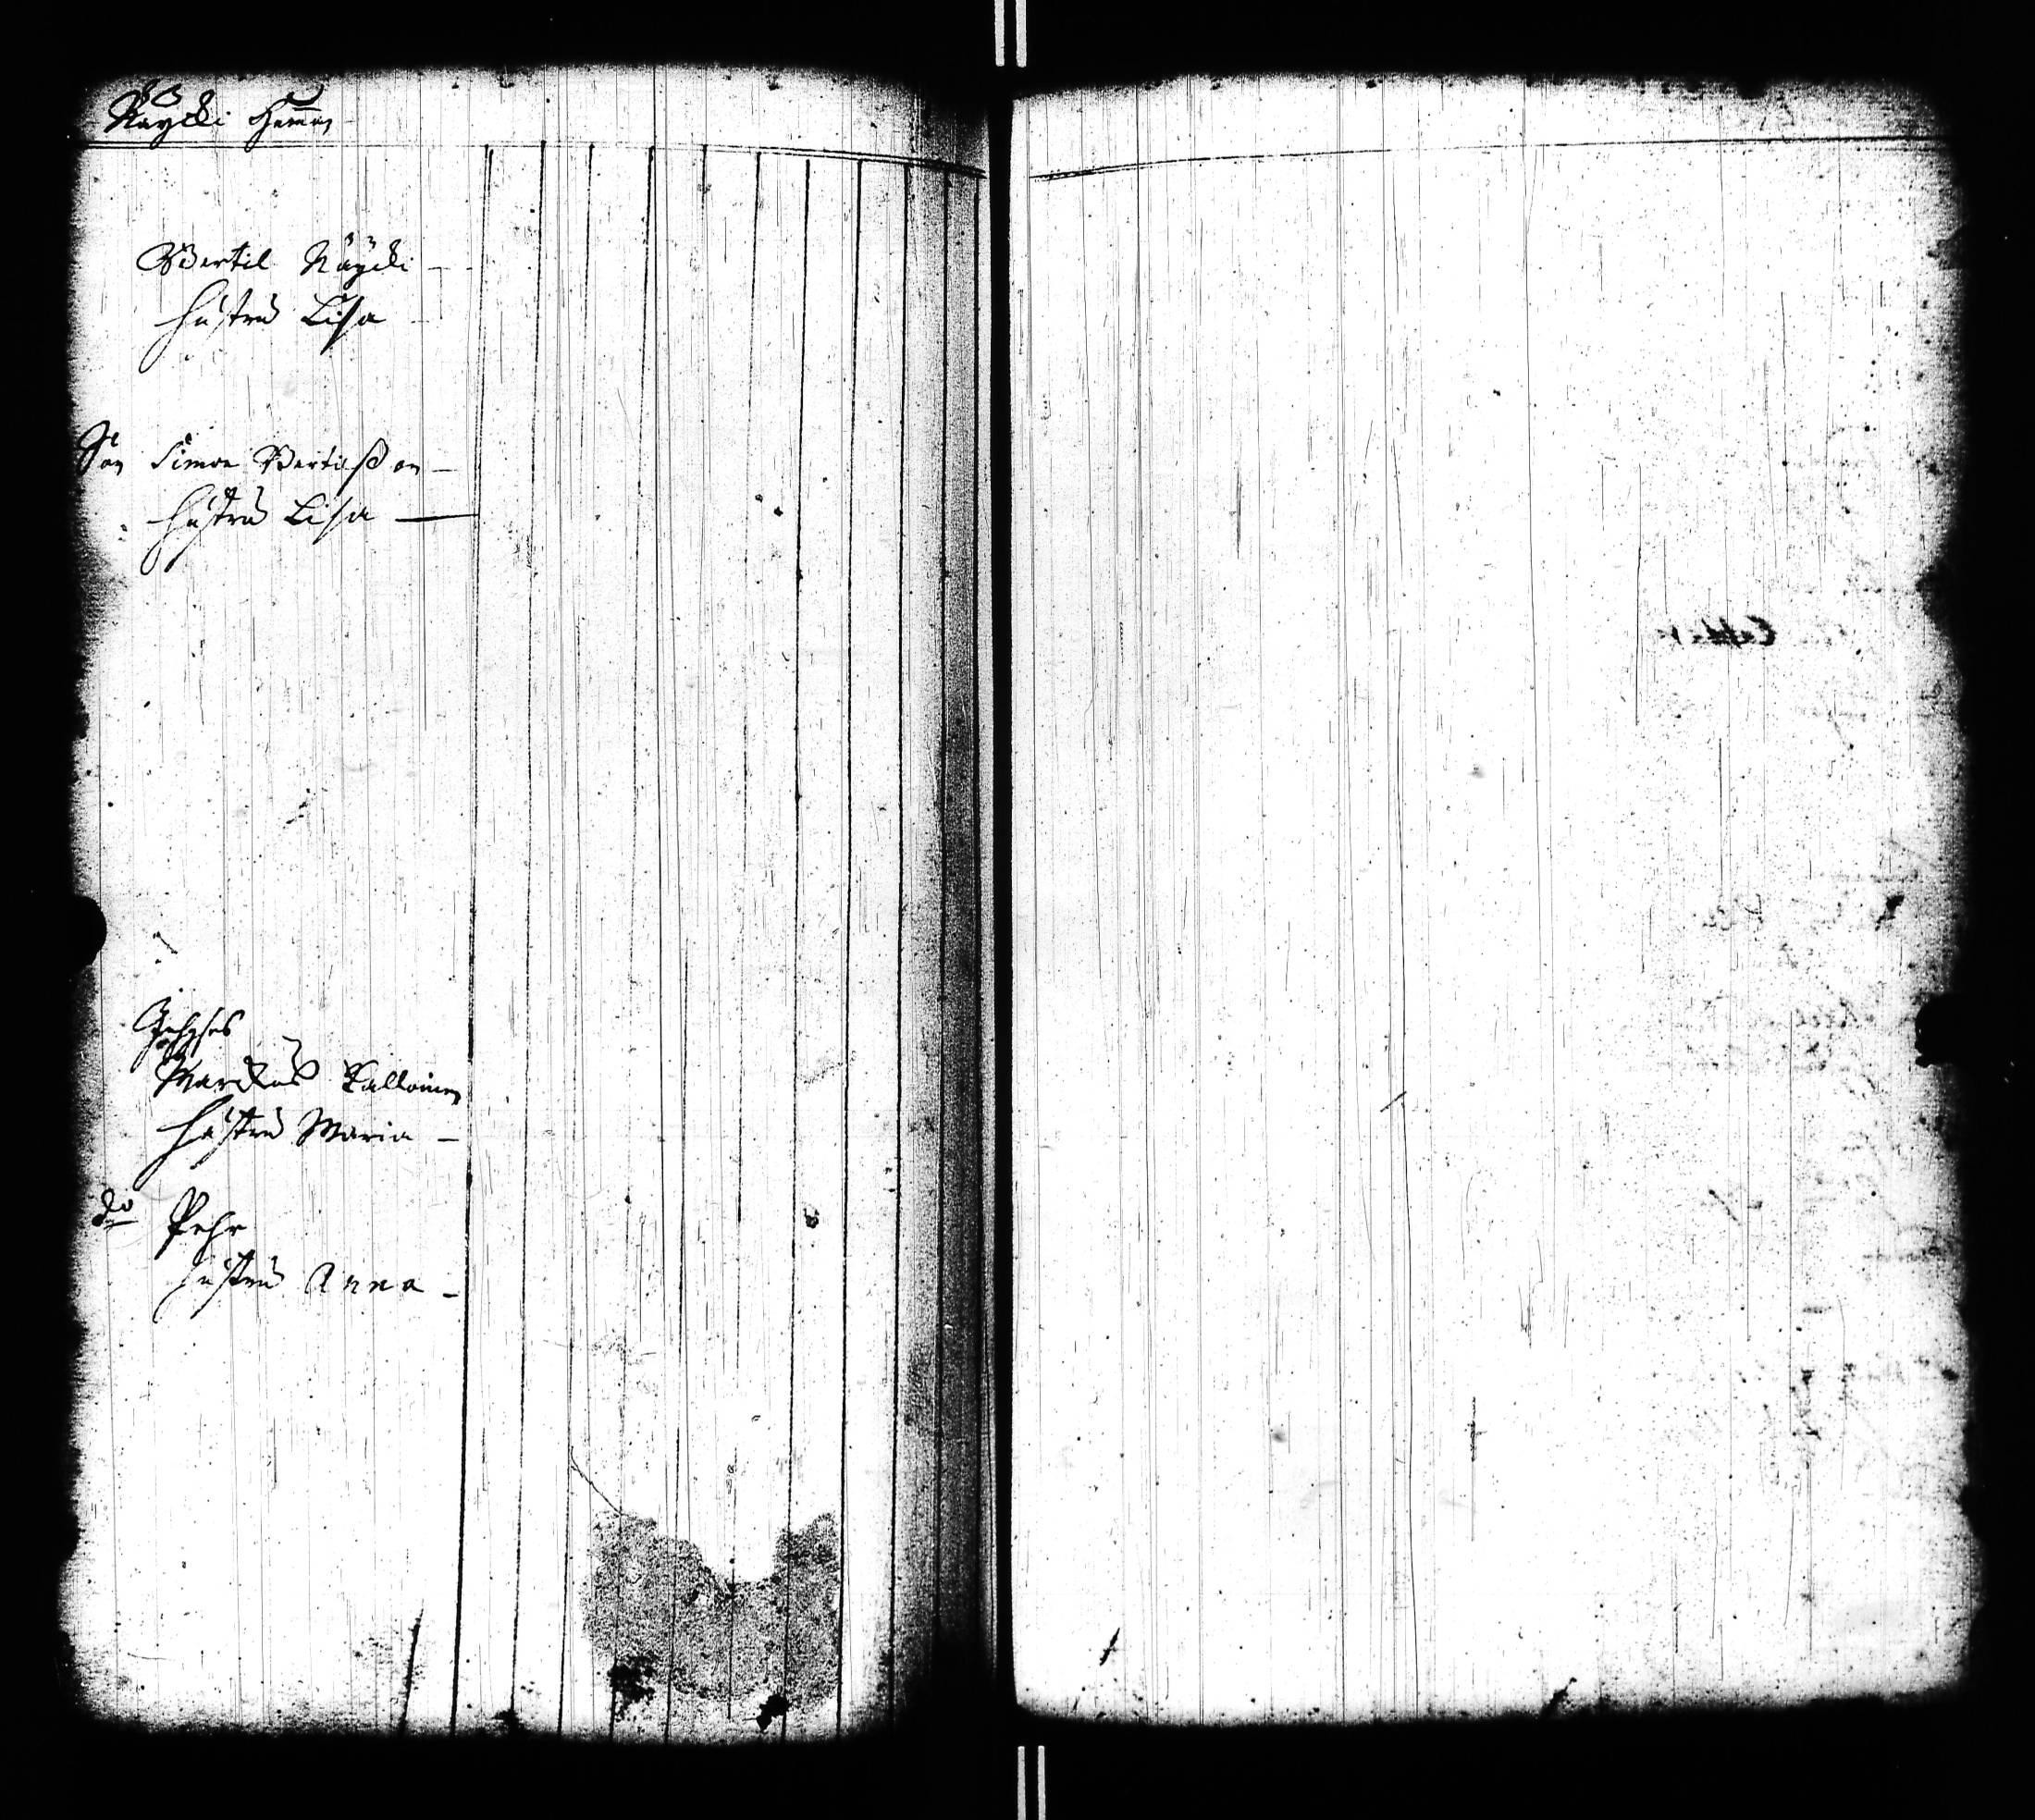 Näycki Hemman
Bertil Näycki
Hustru Lisa
Son Simon Bertilsson
Hustru Lisa
Marckus Kalloinen
Hustru Maria
do Pehr
Hustru Anna